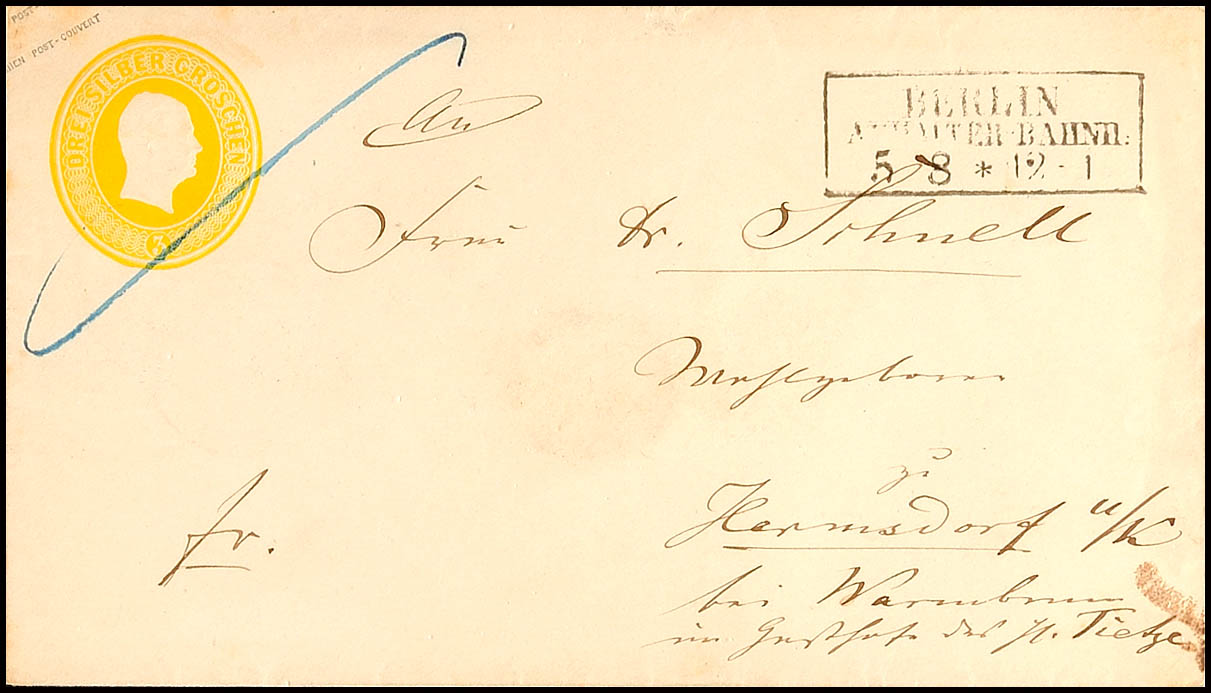 POST-
POST-COUVERT
DREI SILBER GROSCHEN
3
BERLIN
ANHALTER-BAHNH:
5 8 * 12-1
An
Frau Dr. Schnell
Wohlgeboren
zu
Hermsdorf u/K
bei Warmbrunn
im Gasthofe des H. Tietze
fr.